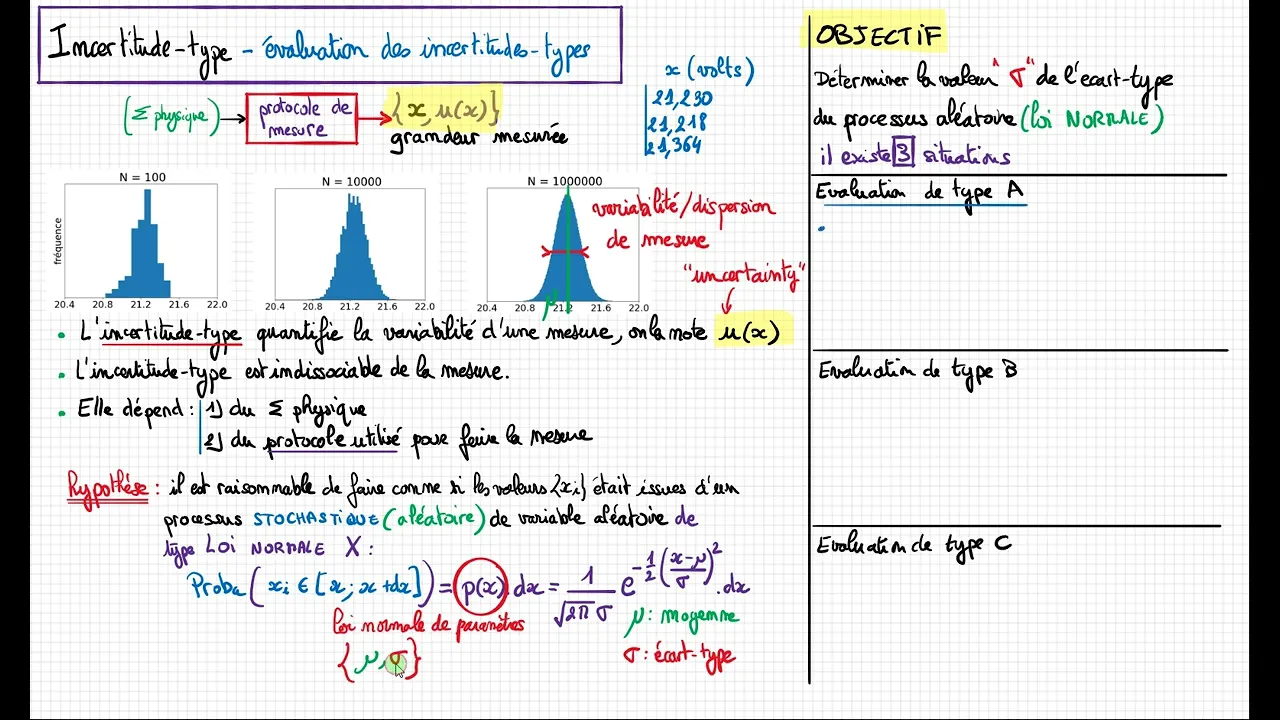 Incertitude-type - évaluation des incertitudes-types
(Σ physique) → protocole de mesure → {x, u(x)}
grandeur mesurée
x (volts)
21,230
21,218
21,364
N = 100
N = 10000
N = 1000000
fréquence
20.4 20.8 21.2 21.6 22.0
20.4 20.8 21.2 21.6 22.0
20.4 20.8 21.2 21.6 22.0
μ
variabilité/dispersion
de mesure
"uncertainty"
• L'incertitude-type quantifie la variabilité d'une mesure, on la note u(x)
• L'incertitude-type est indissociable de la mesure.
• Elle dépend : 1) du Σ physique
2) du protocole utilisé pour faire la mesure
hypothèse : il est raisonnable de faire comme si les valeurs {xi} était issues d'un
processus STOCHASTIQUE (aléatoire) de variable aléatoire de
type LOI NORMALE X :
Proba(xi ∈ [x; x+dx]) = p(x).dx = 1/(√2π σ) e^(-1/2 ((x-μ)/σ)^2) .dx
loi normale de paramètres
{μ, σ}
μ : moyenne
σ : écart-type
OBJECTIF
Déterminer la valeur "σ" de l'écart-type
du processus aléatoire (loi NORMALE)
il existe 3 situations
Evaluation de type A
•
Evaluation de type B
Evaluation de type C